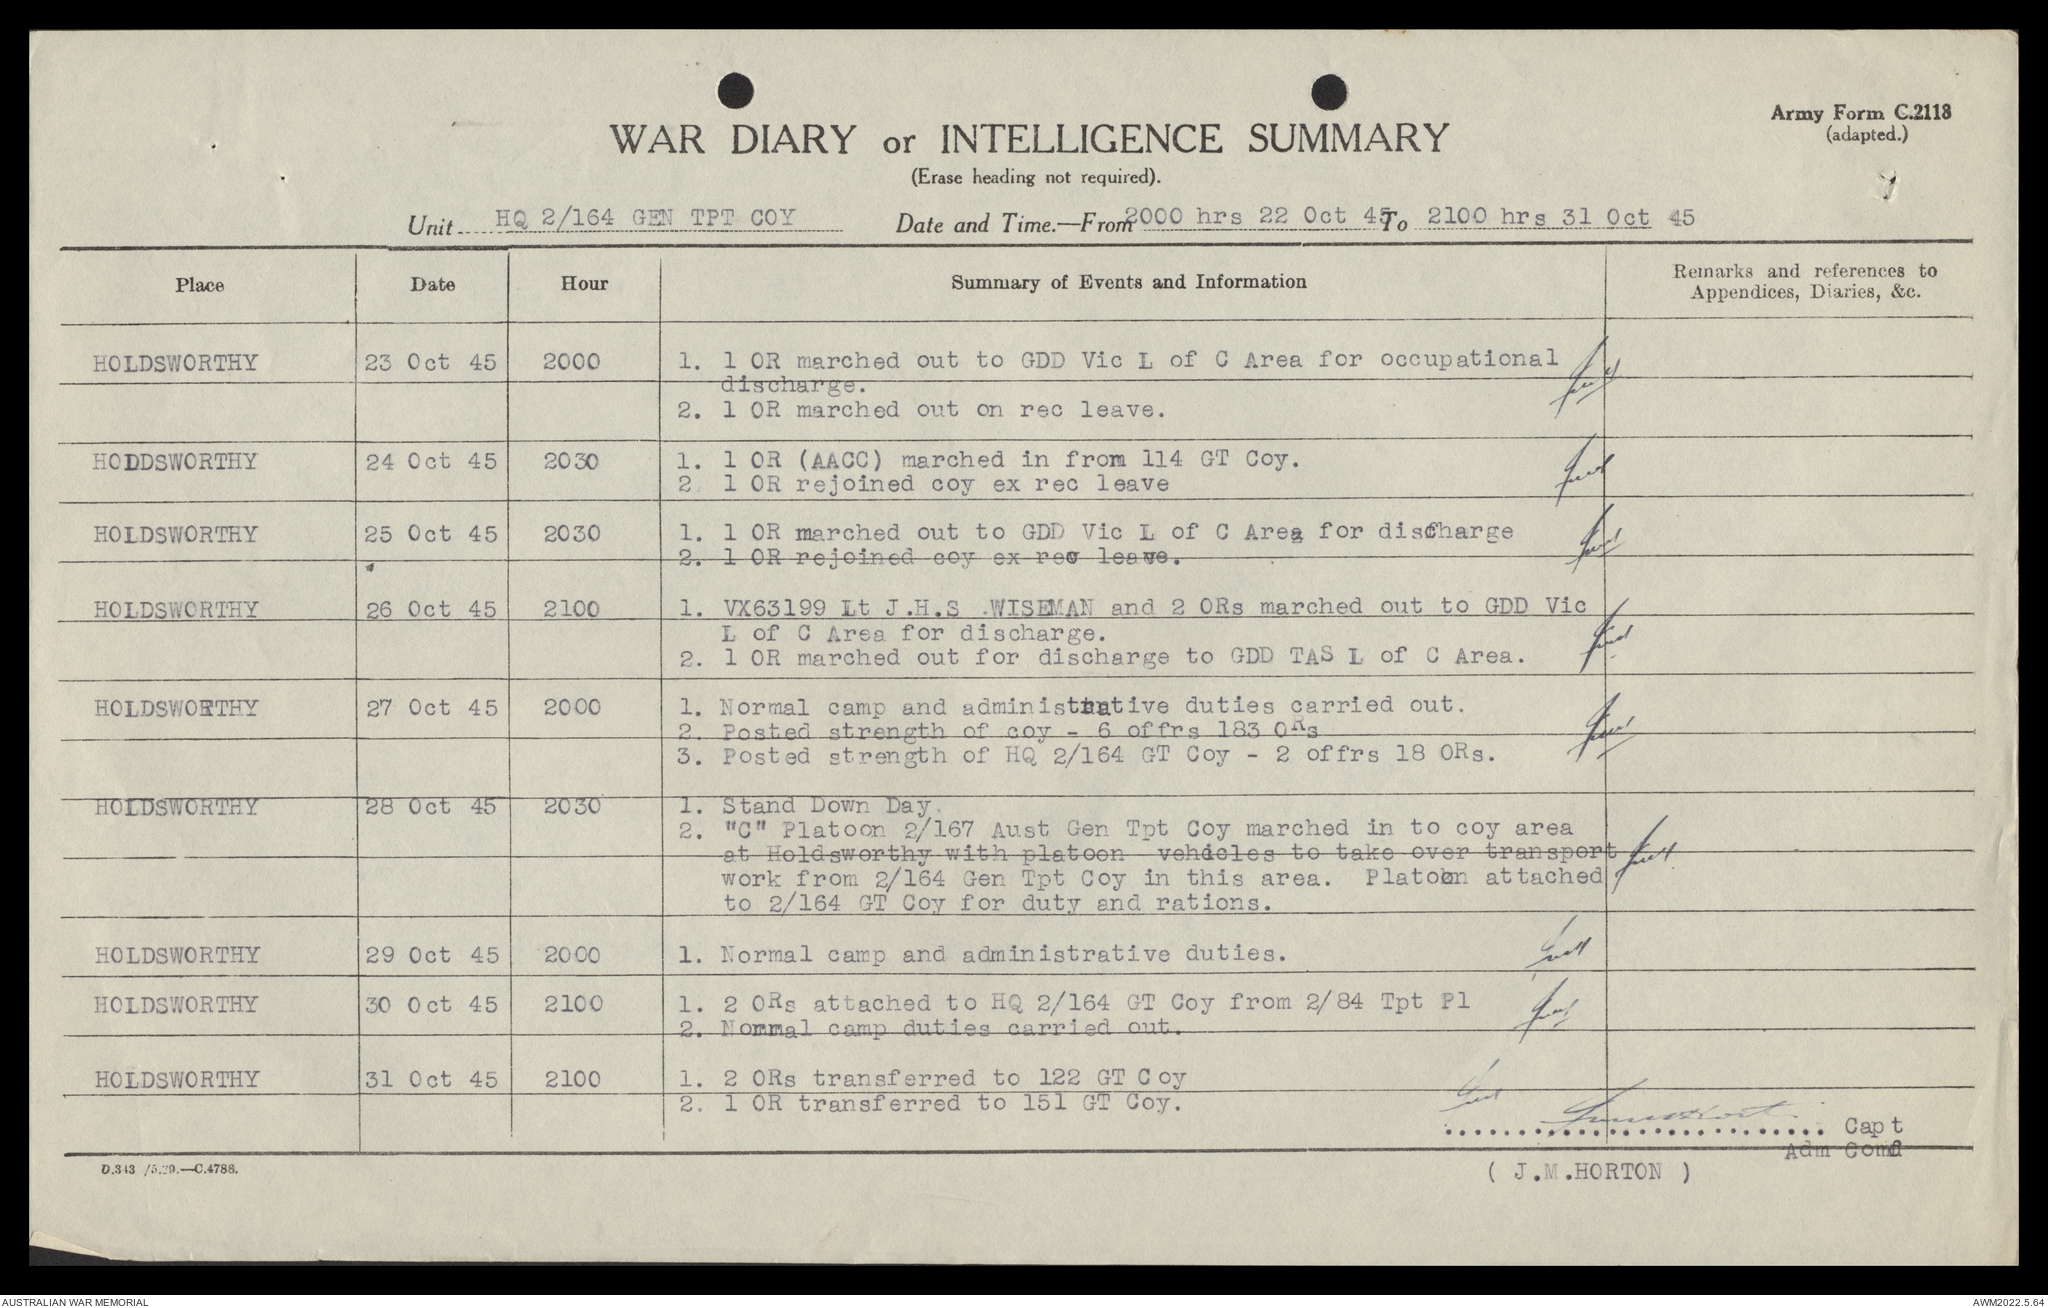 Army Form C.2118
(adapted.)
WAR DIARY or INTELLIGENCE SUMMARY
(Erase heading not required).
Unit HQ 2/164 GEN TPT COY Date and Time.—From 2000 hrs 22 Oct 45 To 2100 hrs 31 Oct 45
Place Date Hour Summary of Events and Information Remarks and references to
Appendices, Diaries, &c.
HOLDSWORTHY 23 Oct 45 2000 1. 1 OR marched out to GDD Vic L of C Area for occupational
discharge.
2. 1 OR marched out on rec leave.
HODDSWORTHY 24 Oct 45 2030 1. 1 OR (AACC) marched in from 114 GT Coy.
2. 1 OR rejoined coy ex rec leave
HOLDSWORTHY 25 Oct 45 2030 1. 1 OR marched out to GDD Vic L of C Area for discharge
2. 1 OR rejoined coy ex rec leave.
HOLDSWORTHY 26 Oct 45 2100 1. VX63199 Lt J.H.S .WISEMAN and 2 ORs marched out to GDD Vic
L of C Area for discharge.
2. 1 OR marched out for discharge to GDD TAS L of C Area.
HOLDSWORTHY 27 Oct 45 2000 1. Normal camp and administrative duties carried out.
2. Posted strength of coy - 6 offrs 183 ORs
3. Posted strength of HQ 2/164 GT Coy - 2 offrs 18 ORs.
HOLDSWORTHY 28 Oct 45 2030 1. Stand Down Day.
2. "C" Platoon 2/167 Aust Gen Tpt Coy marched in to coy area
at Holdsworthy with platoon vehicles to take over transport
work from 2/164 Gen Tpt Coy in this area. Platoon attached
to 2/164 GT Coy for duty and rations.
HOLDSWORTHY 29 Oct 45 2000 1. Normal camp and administrative duties.
HOLDSWORTHY 30 Oct 45 2100 1. 2 ORs attached to HQ 2/164 GT Coy from 2/84 Tpt Pl
2. Normal camp duties carried out.
HOLDSWORTHY 31 Oct 45 2100 1. 2 ORs transferred to 122 GT Coy
2. 1 OR transferred to 151 GT Coy.
Capt
Adm Comd
( J.M.HORTON )
D.343 /5.39.—C.4786.
AUSTRALIAN WAR MEMORIAL AWM2022.5.64